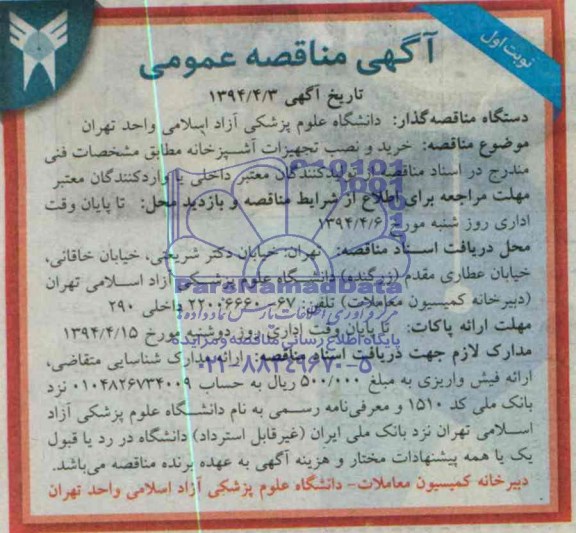 نوبت اول
آگهی مناقصه عمومی
تاریخ آگهی ۱۳۹۴/۴/۳
دستگاه مناقصه‌گذار: دانشگاه علوم پزشکی آزاد اسلامی واحد تهران
موضوع مناقصه: خرید و نصب تجهیزات آشپزخانه مطابق مشخصات فنی
مندرج در اسناد مناقصه از تولیدکنندگان معتبر داخلی یا واردکنندگان معتبر
مهلت مراجعه برای اطلاع از شرایط مناقصه و بازدید محل: تا پایان وقت
اداری روز شنبه مورخ ۱۳۹۴/۴/۶
محل دریافت اسناد مناقصه: تهران، خیابان دکتر شریعتی، خیابان خاقانی،
خیابان عطاری مقدم (زرگنده) دانشگاه علوم پزشکی آزاد اسلامی تهران
ParsNamadData
(دبیرخانه کمیسیون معاملات) تلفن: ۶۷-۲۲۰۰۶۶۶۰ داخلی ۲۹۰
مهلت ارائه پاکات: تا پایان وقت اداری روز دوشنبه مورخ ۱۳۹۴/۴/۱۵
پایگاه اطلاع رسانی مناقصه و مزایده
مدارک لازم جهت دریافت اسناد مناقصه: ارائه مدارک شناسایی متقاضی،
۰۲۱-۸۸۳۴۹۶۷۰-۵
ارائه فیش واریزی به مبلغ ۵۰۰/۰۰۰ ریال به حساب ۰۱۰۴۸۲۶۷۳۴۰۰۹ نزد
بانک ملی کد ۱۵۱۰ و معرفی‌نامه رسمی به نام دانشگاه علوم پزشکی آزاد
اسلامی تهران نزد بانک ملی ایران (غیرقابل استرداد) دانشگاه در رد یا قبول
یک یا همه پیشنهادات مختار و هزینه آگهی به عهده برنده مناقصه می‌باشد.
دبیرخانه کمیسیون معاملات- دانشگاه علوم پزشکی آزاد اسلامی واحد تهران